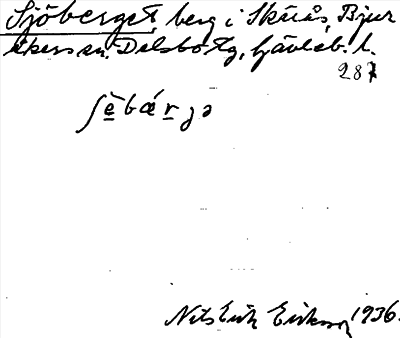 Sjöberget, berg i Skråås, Bjur
åkers sn. Delsbo tg, Gävleb. l.
287
ʃè̱bǽṟgə
Nils Erik Eriksson 1936.